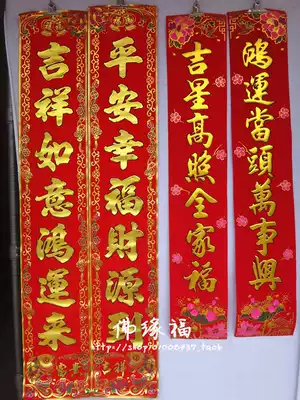 鴻運當頭萬事興
吉星高照全家福
平安幸福財源
吉祥如意鴻運来
佛缘福
富貴吉祥